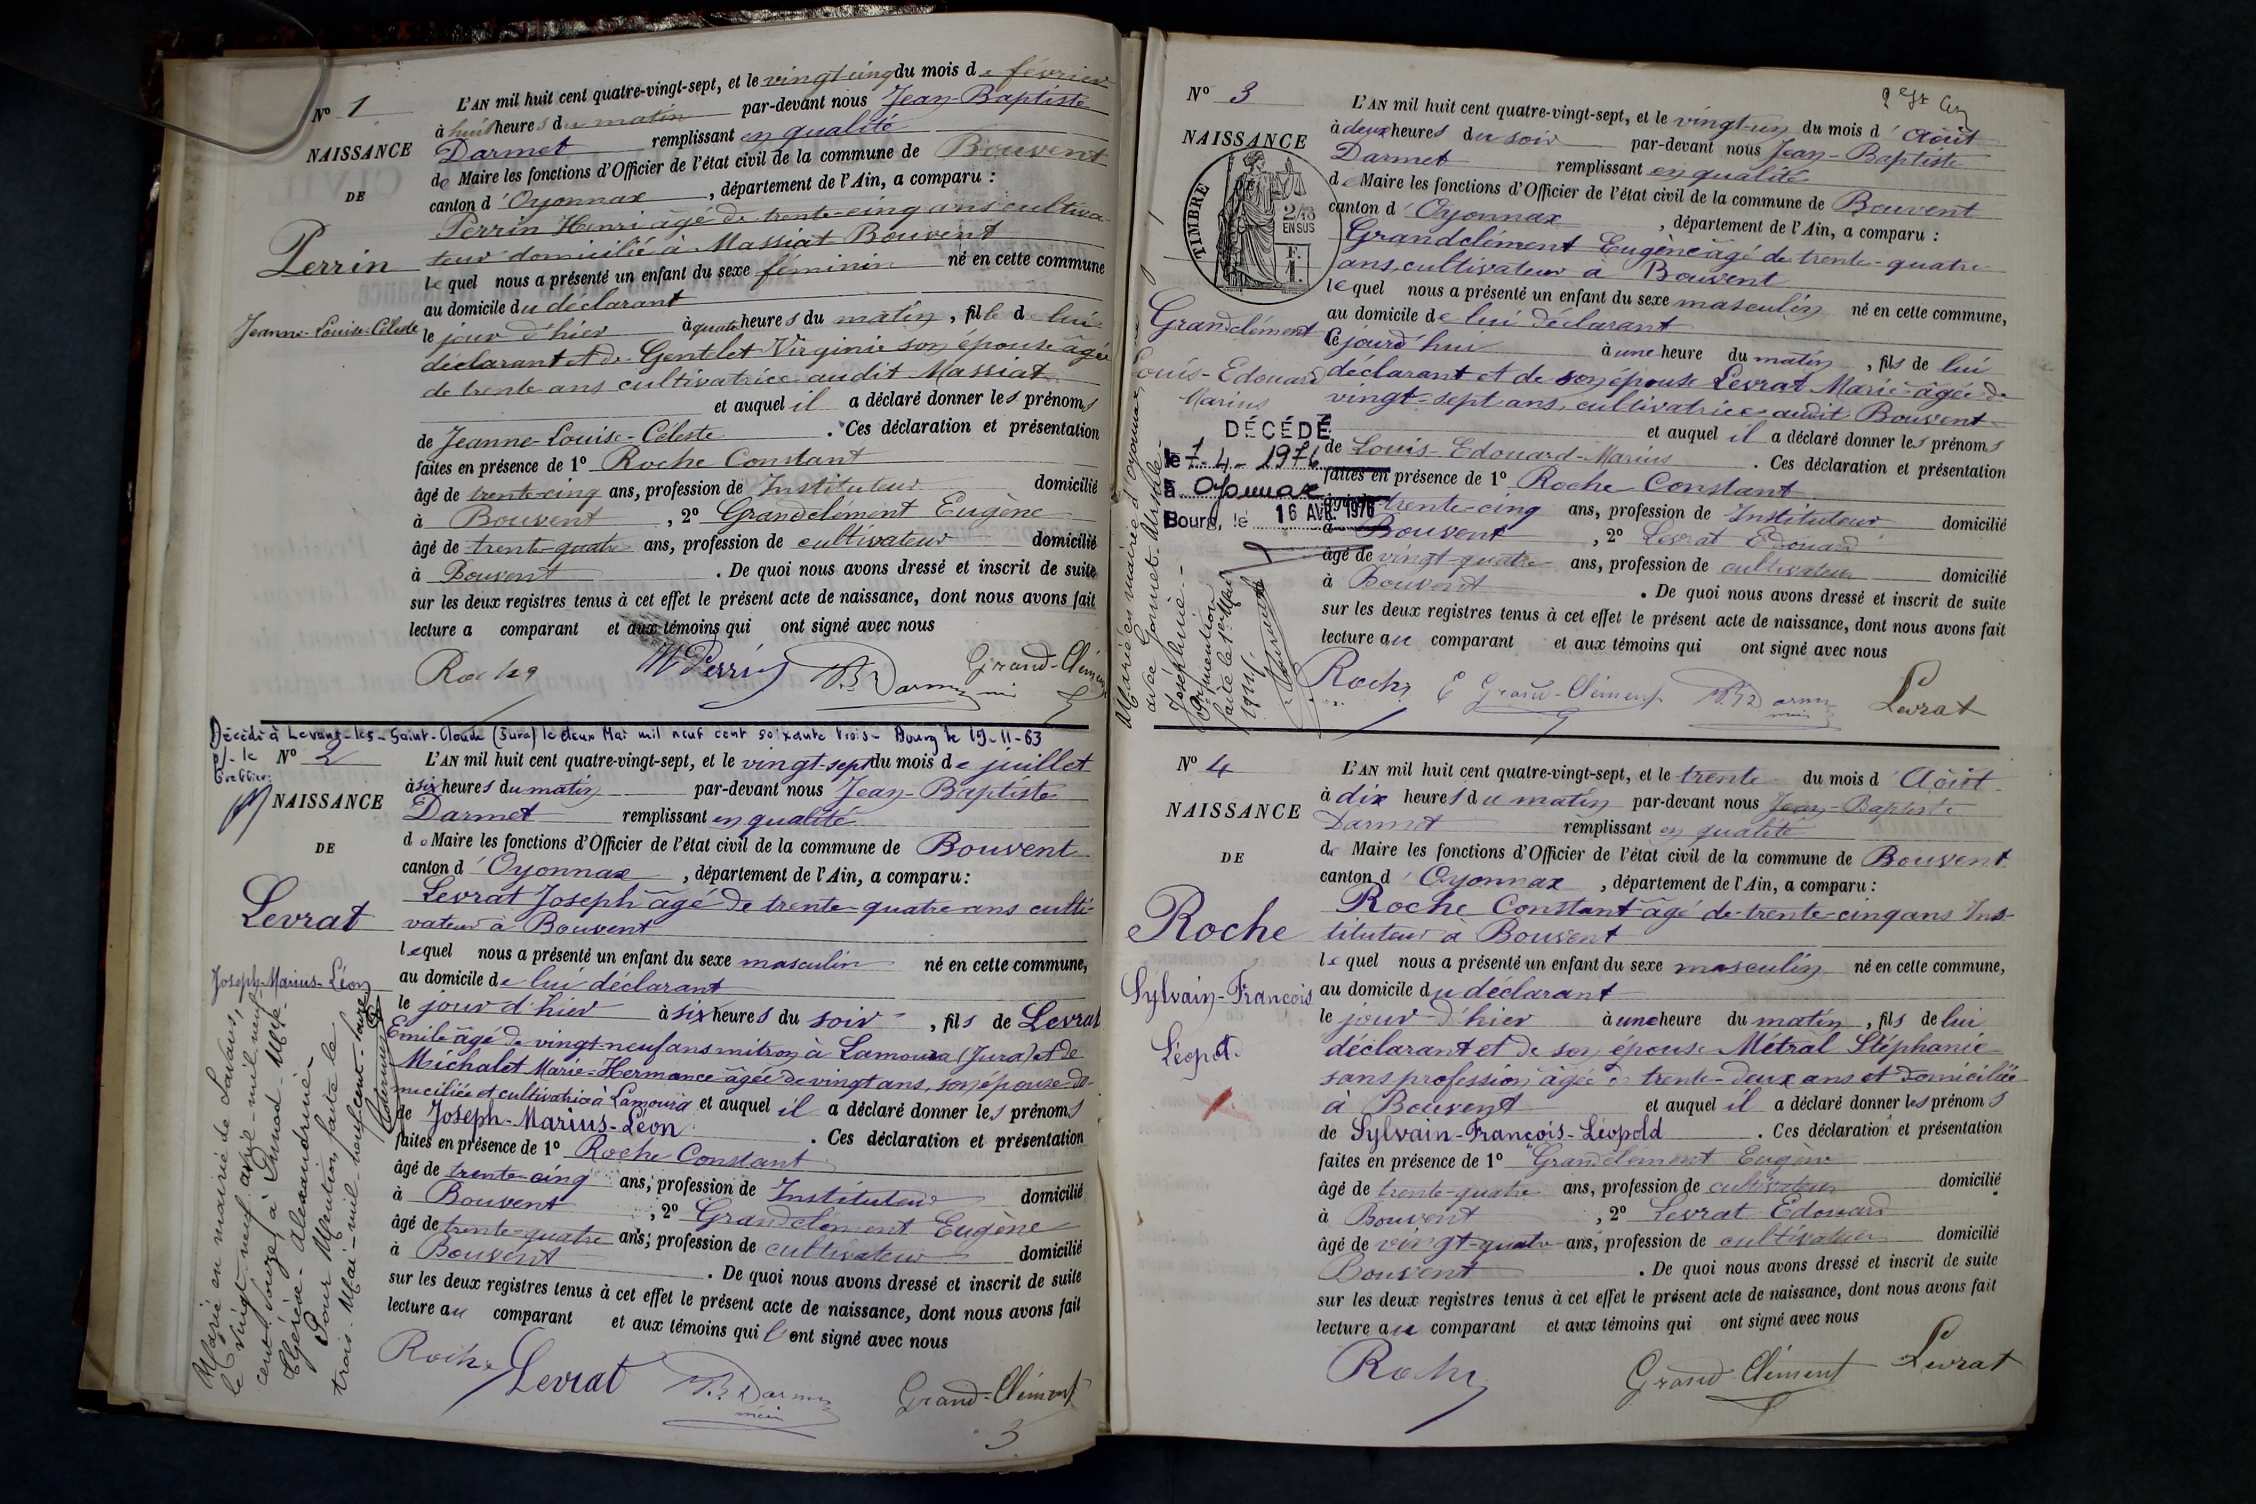 N° 1
NAISSANCE
DE
Perrin
Jeanne-Louise-Céleste
L'AN mil huit cent quatre-vingt-sept, et le vingt cinq du mois de février
à huit heures du matin par-devant nous Jean-Baptiste
Darmet remplissant en qualité
de Maire les fonctions d'Officier de l'état civil de la commune de Bouvent
canton d'Oyonnax, département de l'Ain, a comparu :
Perrin Henri âgé de trente-cinq ans cultiva-
teur domicilié à Massiat Bouvent
lequel nous a présenté un enfant du sexe féminin né en cette commune
au domicile du déclarant
le jour d'hier à quatre heures du matin, fille de lui
déclarant et de Gentelet Virginie son épouse âgée
de trente ans cultivatrice audit Massiat
et auquel il a déclaré donner les prénoms
de Jeanne-Louise-Céleste. Ces déclaration et présentation
faites en présence de 1° Roche Constant
âgé de trente-cinq ans, profession de Instituteur domicilié
à Bouvent, 2° Grandclément Eugène
âgé de trente-quatre ans, profession de cultivateur domicilié
à Bouvent. De quoi nous avons dressé et inscrit de suite
sur les deux registres tenus à cet effet le présent acte de naissance, dont nous avons fait
lecture a comparant et aux témoins qui ont signé avec nous
Roche Perrin Darmet Grand-Clément
Décédé à Lavans-les-Saint-Claude (Jura) le deux Mai mil neuf cent soixante trois - Bourg le 19-11-63
p/. le
Greffier
N° 2
NAISSANCE
DE
Levrat
Joseph-Marius-Léon
Marié en mairie de Lavans,
le vingt-neuf avril-mil neuf
cent douze, à
- Alexandrine -
Pour Mention faite le
trois-Mai-mil-neuf-cent-douze
L'AN mil huit cent quatre-vingt-sept, et le vingt-sept du mois de juillet
à six heures du matin par-devant nous Jean-Baptiste
Darmet remplissant en qualité
de Maire les fonctions d'Officier de l'état civil de la commune de Bouvent
canton d'Oyonnax, département de l'Ain, a comparu :
Levrat Joseph âgé de trente-quatre ans culti-
vateur à Bouvent
lequel nous a présenté un enfant du sexe masculin né en cette commune,
au domicile de lui déclarant
le jour d'hier à six heures du soir, fils de Levrat
Emile âgé de vingt-neuf ans mitron à Lamoura (Jura) et de
Michalet Marie-Hermance âgée de vingt ans, son épouse do-
miciliée et cultivatrice à Lamoura et auquel il a déclaré donner les prénoms
de Joseph-Marius-Léon. Ces déclaration et présentation
faites en présence de 1° Roche Constant
âgé de trente-cinq ans, profession de Instituteur domicilié
à Bouvent, 2° Grandclément Eugène
âgé de trente-quatre ans, profession de cultivateur domicilié
à Bouvent. De quoi nous avons dressé et inscrit de suite
sur les deux registres tenus à cet effet le présent acte de naissance, dont nous avons fait
lecture au comparant et aux témoins qui l'ont signé avec nous
Roche Levrat Darmet Grand-Clément
3
N° 3
NAISSANCE
TIMBRE
2/10
EN SUS
F.
1.
Grandclément
Louis-Edouard
Marius
DÉCÉDÉ
le 7-4-1976
à Oyonnax
Bourg, le 16 AVR. 1976
Marié en mairie d'Oyonnax
avec
Joséphine -
Pour mention
faite le
L'AN mil huit cent quatre-vingt-sept, et le vingt-un du mois d'Août
à deux heures du soir par-devant nous Jean-Baptiste
Darmet remplissant en qualité
de Maire les fonctions d'Officier de l'état civil de la commune de Bouvent
canton d'Oyonnax, département de l'Ain, a comparu :
Grandclément Eugène âgé de trente-quatre
ans, cultivateur à Bouvent
lequel nous a présenté un enfant du sexe masculin né en cette commune,
au domicile de lui déclarant
cejourd'hui à une heure du matin, fils de lui
déclarant et de son épouse Levrat Marie âgée de
vingt-sept ans, cultivatrice audit Bouvent
et auquel il a déclaré donner les prénoms
de Louis-Edouard-Marius. Ces déclaration et présentation
faites en présence de 1° Roche Constant
âgé de trente-cinq ans, profession de Instituteur domicilié
à Bouvent, 2° Levrat Edouard
âgé de vingt-quatre ans, profession de cultivateur domicilié
à Bouvent. De quoi nous avons dressé et inscrit de suite
sur les deux registres tenus à cet effet le présent acte de naissance, dont nous avons fait
lecture au comparant et aux témoins qui ont signé avec nous
Roche E Grand-Clément Darmet Levrat
N° 4
NAISSANCE
DE
Roche
Sylvain-François
Léopold
L'AN mil huit cent quatre-vingt-sept, et le trente du mois d'Août
à dix heures du matin par-devant nous Jean-Baptiste
Darmet remplissant en qualité
de Maire les fonctions d'Officier de l'état civil de la commune de Bouvent
canton d'Oyonnax, département de l'Ain, a comparu :
Roche Constant âgé de trente-cinq ans Ins-
tituteur à Bouvent
lequel nous a présenté un enfant du sexe masculin né en cette commune,
au domicile du déclarant
le jour d'hier à une heure du matin, fils de lui
déclarant et de son épouse Métral Stéphanie
sans profession âgée de trente-deux ans et domiciliée
à Bouvent et auquel il a déclaré donner les prénoms
de Sylvain-François-Léopold. Ces déclaration et présentation
faites en présence de 1° Grandclément Eugène
âgé de trente-quatre ans, profession de cultivateur domicilié
à Bouvent, 2° Levrat Edouard
âgé de vingt-quatre ans, profession de cultivateur domicilié
Bouvent. De quoi nous avons dressé et inscrit de suite
sur les deux registres tenus à cet effet le présent acte de naissance, dont nous avons fait
lecture au comparant et aux témoins qui ont signé avec nous
Roche Grand-Clément Levrat